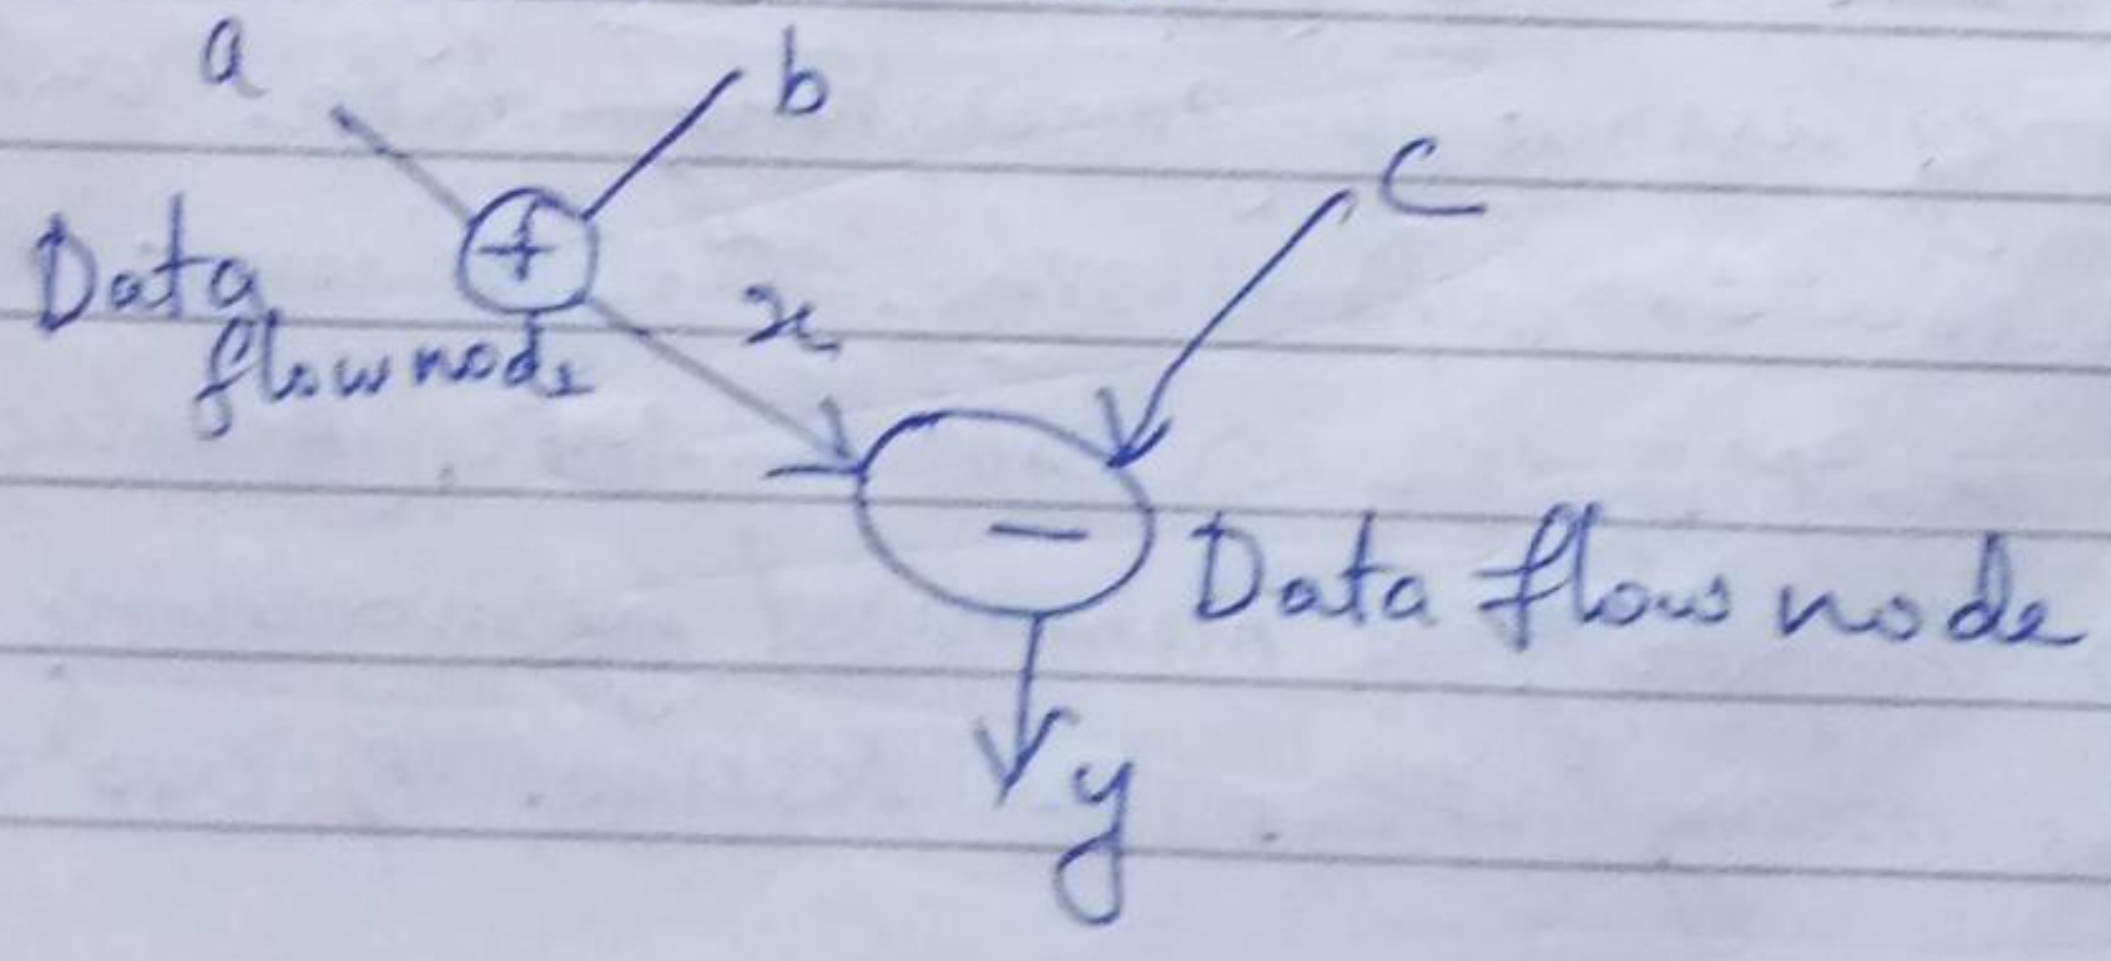 a
b
C
+
Data
flow node
x
-
Data flow node
y